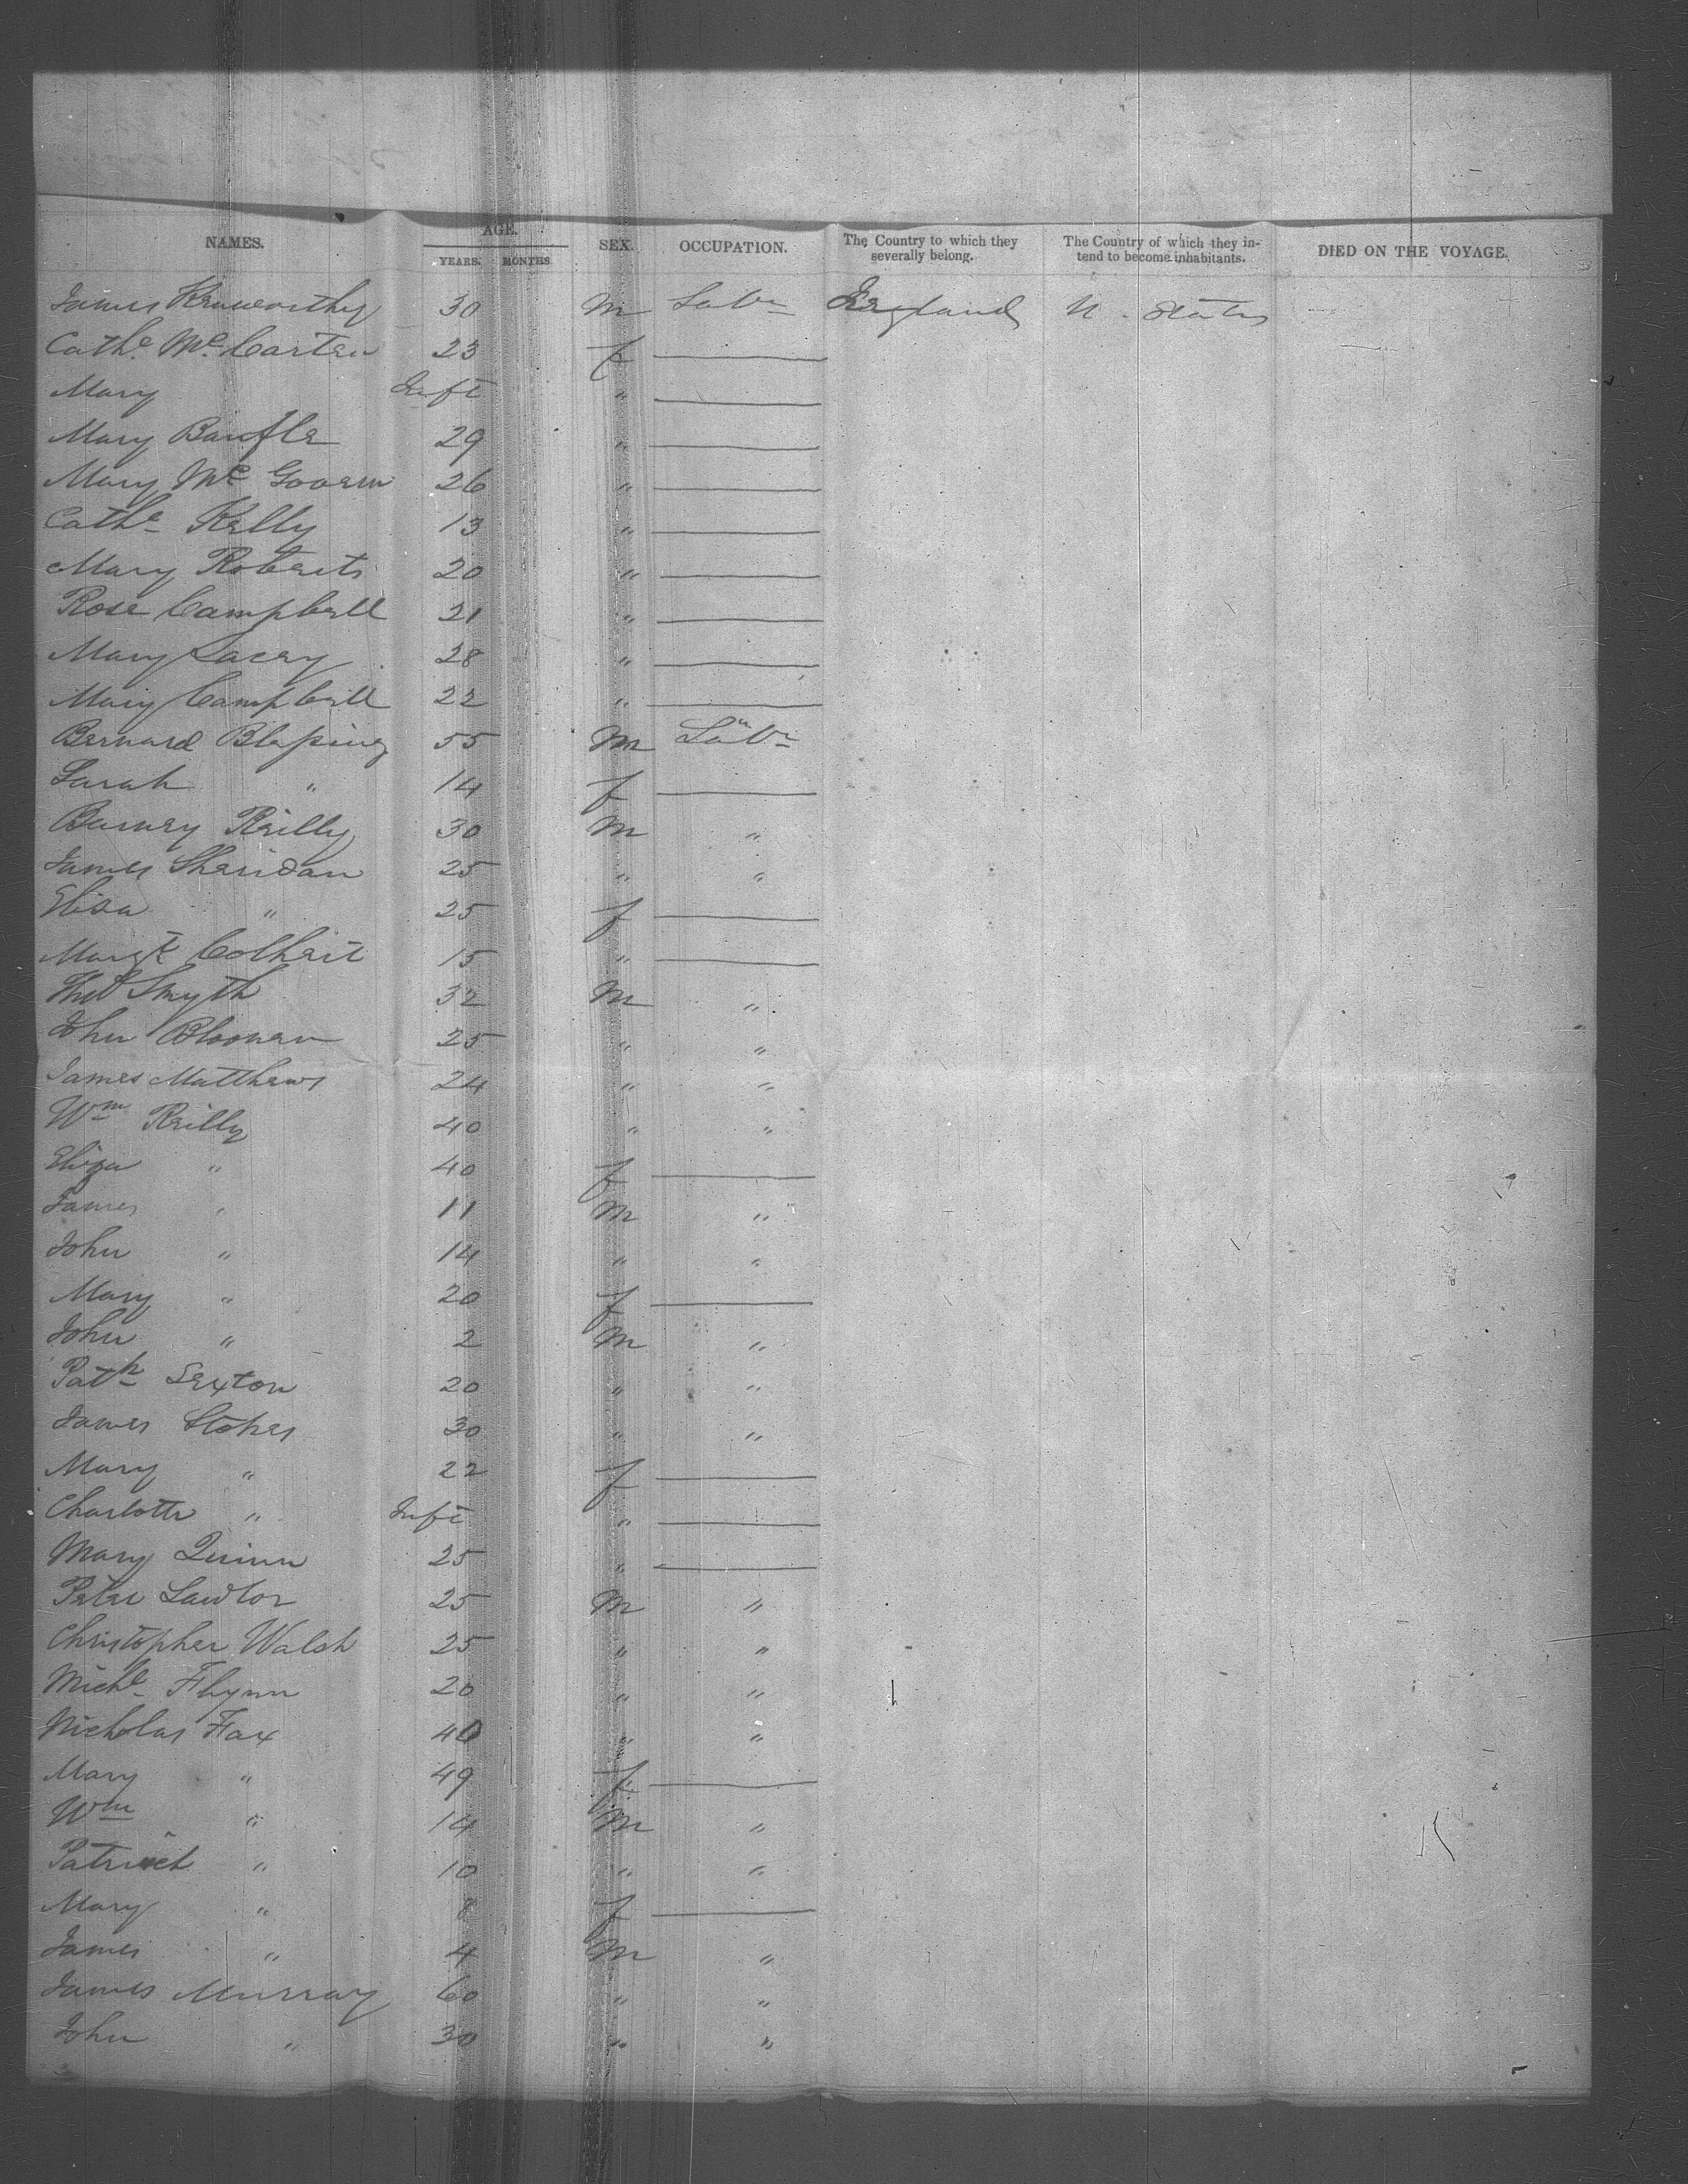 NAMES. AGE. YEARS. MONTHS SEX. OCCUPATION. The Country to which they severally belong. The Country of which they intend to become inhabitants. DIED ON THE VOYAGE.
James Kenworthy 30 M Labr England U. States
Cathe Mc Carten 23 f
Mary Inft "
Mary 29 "
Mary Mc Govern 26 "
Cathe Kelly 13 "
Mary Roberts 20 "
Rose Campbell 21 "
Mary Lacey 28 "
Mary Campbell 22 "
Bernard 55 M Labr
Sarah " 14 f
Barney Reilly 30 M "
James Sheridan 25 " "
Eliza " 25 f
Margt 15 "
Smyth 32 M "
John 25 " "
James Matthews 24 " "
Wm Reilly 40 " "
Eliza " 40 f
James " 11 M "
John " 14 " "
Mary " 20 f
John " 2 M "
Patk Sexton 20 " "
James Stokes 30 " "
Mary " 22 f
Charlotte " Inft "
Mary Quinn 25 "
Peter Lawlor 25 M "
Christopher Walsh 25 " "
Michl Flynn 20 " "
Nicholas Fox 40 " "
Mary " 49 f
Wm " 14 M "
Patrick " 10 " "
Mary " 8 f
James " 4 M "
James Murray 60 " "
John " 30 " "